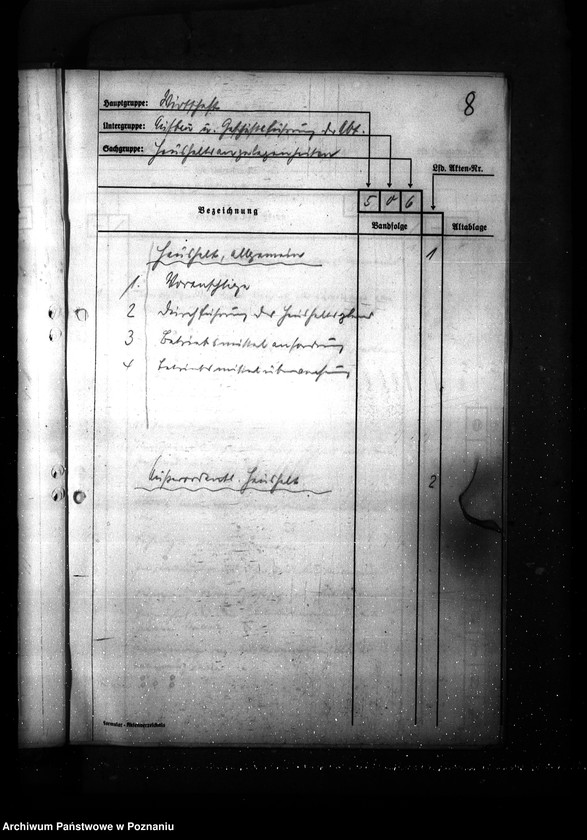 8
Hauptgruppe: Wirtschaft
Untergruppe: Aufbau u. Geschäftsführung der Abt.
Sachgruppe: Haushaltsangelegenheiten
Lfd. Akten-Nr.
5 0 6
Bezeichnung
Bandfolge
Altablage
Haushalt, allgemein 1
1. Voranschläge
2 Durchführung des Haushaltsplans
3 Betriebsmittelanforderung
4 Betriebsmittelüberweisung
Außerordentl. Haushalt 2
Formular - Aktenverzeichnis
Archiwum Państwowe w Poznaniu